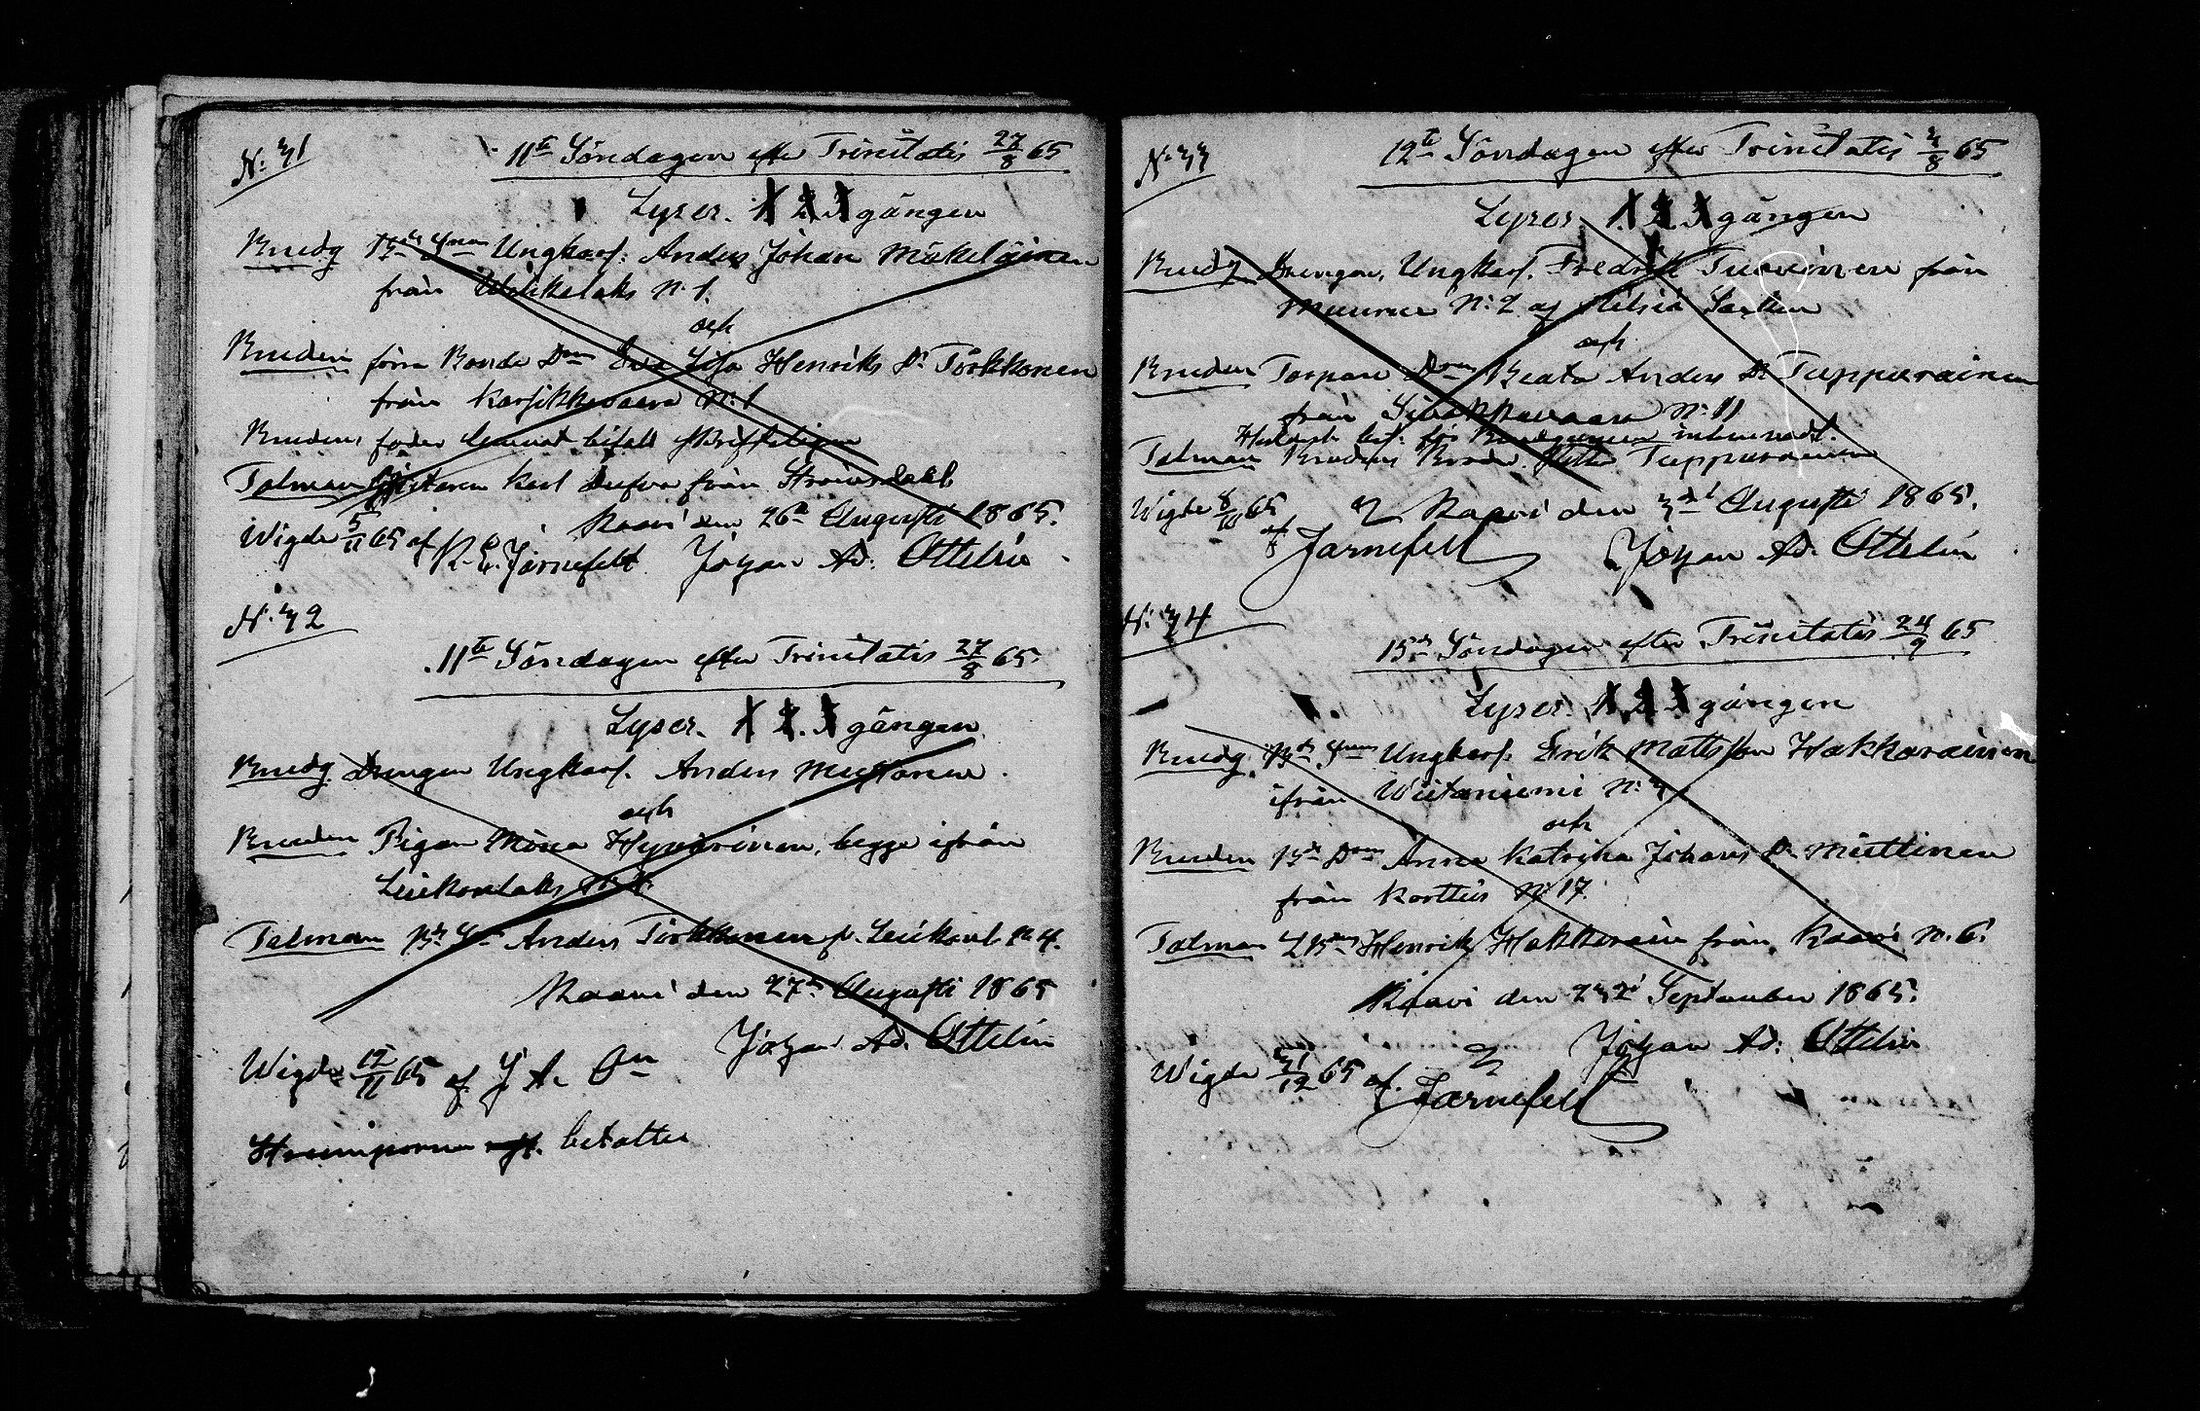 N: 31
11te Söndagen efter Trinitatis 27/8 65
Lyser. 1. 2. 3 gången
Brudg Bde Snen Ungkarl. Anders Johan Mäkeläinen
från Wehkalaks N: 1.
och
Bruden förra Bonde Dren Eva Lisa Henriks Dr Törkkönen
från Karsikkovaara N: 1
Brudens fader lemnat bifall skriftligen
Talman Karl Dufva från Strömsdahl
Kaavi den 26te Augusti 1865.
Wigde 5/11 65 af K. E. Järnefelt Johan Ad. Ottelin
N: 32
11te Söndagen efter Trinitatis 27/8 65.
Lyser. 1. 2. 3 gången
Brudg Drengen Ungkarl. Anders Mustonen.
och
Bruden Pigan Mona Hyvärinen, begge ifrån
Luikonlaks N: 4.
Talman Bde Sn Anders Törkkönen fr. Luikonl. N 4.
Kaavi den 27de Augusti 1865
Johan Ad. Ottelin
Wigde 12/11 65 af J. A. On
betalte
N: 33
12te Söndagen efter Trinitatis 3/8 65
Lyser. 1. 2. 3 gången
Brudg Drengen, Ungkarl. Fredrik Tuovinen från
Muurue N: 2 af
och
Bruden Torpare Dren Beata Anders Dr Tuppurainen
från Siwakkavaara N: 11
för Brudgummen inlemnadt.
Talman Brudens Broder Tuppurainen
Kaavi den 3die Augusti 1865.
Wigde 8/10 65 af Järnefelt Johan Ad. Ottelin
N: 34
15de Söndagen efter Trinitatis 24/9 65
Lyser. 1. 2. 3 gången
Brudg. Bde Snen Ungkarl. Erik Mattsson Hakkarainen
ifrån Wiitaniemi N: 3.
och
Bruden Bde Dren Anna Katrina Johans Dr Miettinen
från Korttus N: 17.
Talman Henrik Hakkarain från Kaavi N. 6.
Kaavi den 23die September 1865.
Johan Ad. Ottelin
Wigde 31/12 65 af. Järnefelt